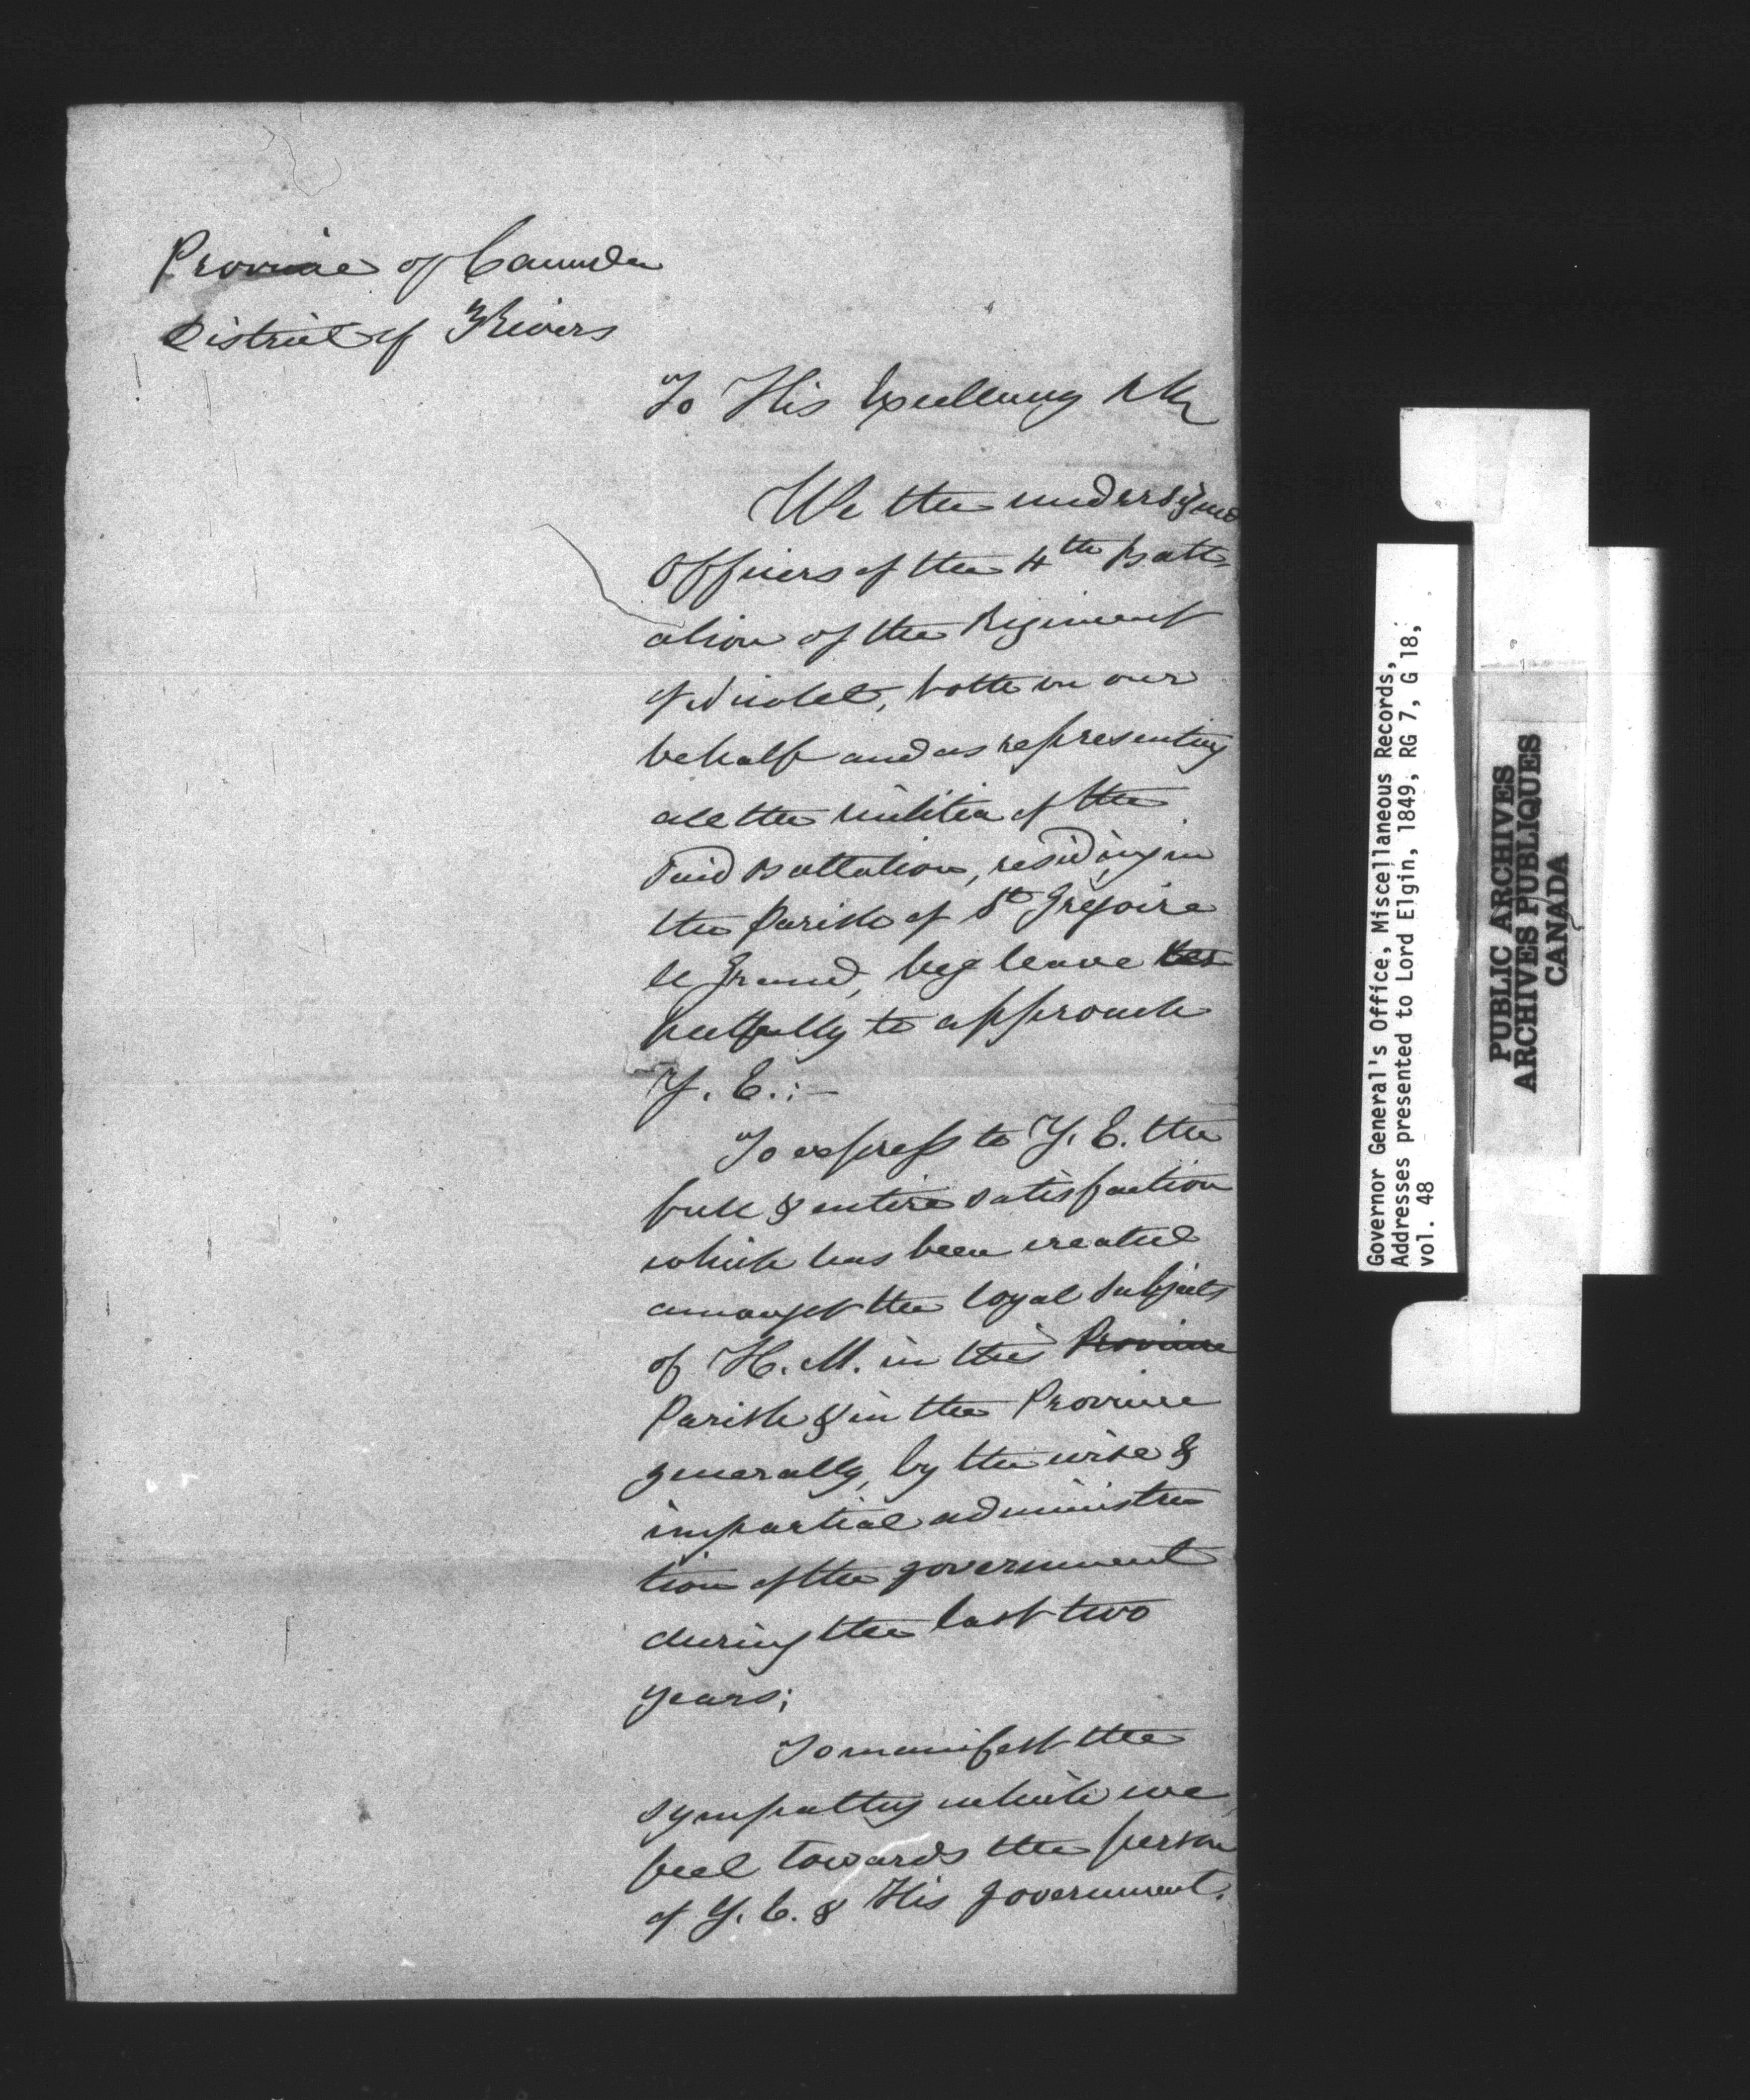 Province of Canada
District of 3 Rivers
To His Excellency &c
We the undersigned
Officers of the 4th Batt-
alion of the Regiment
of Nicolet, both on our
behalf and as representing
all the militia of the
said Battalion, residing in
the Parish of St Grégoire
le Grand, beg leave res
pectfully to approach
Y. E.:—
To express to Y. E. the
full & entire satisfaction
which has been created
amongst the loyal subjects
of H. M. in this Province
Parish & in the Province
generally, by the wise &
impartial administra
tion of the government
during the last two
years;
To manifest the
sympathy which we
feel towards the person
of Y. E. & His government.
Governor General's Office, Miscellaneous Records,
Addresses presented to Lord Elgin, 1849, RG 7, G 18,
vol. 48
PUBLIC ARCHIVES
ARCHIVES PUBLIQUES
CANADA